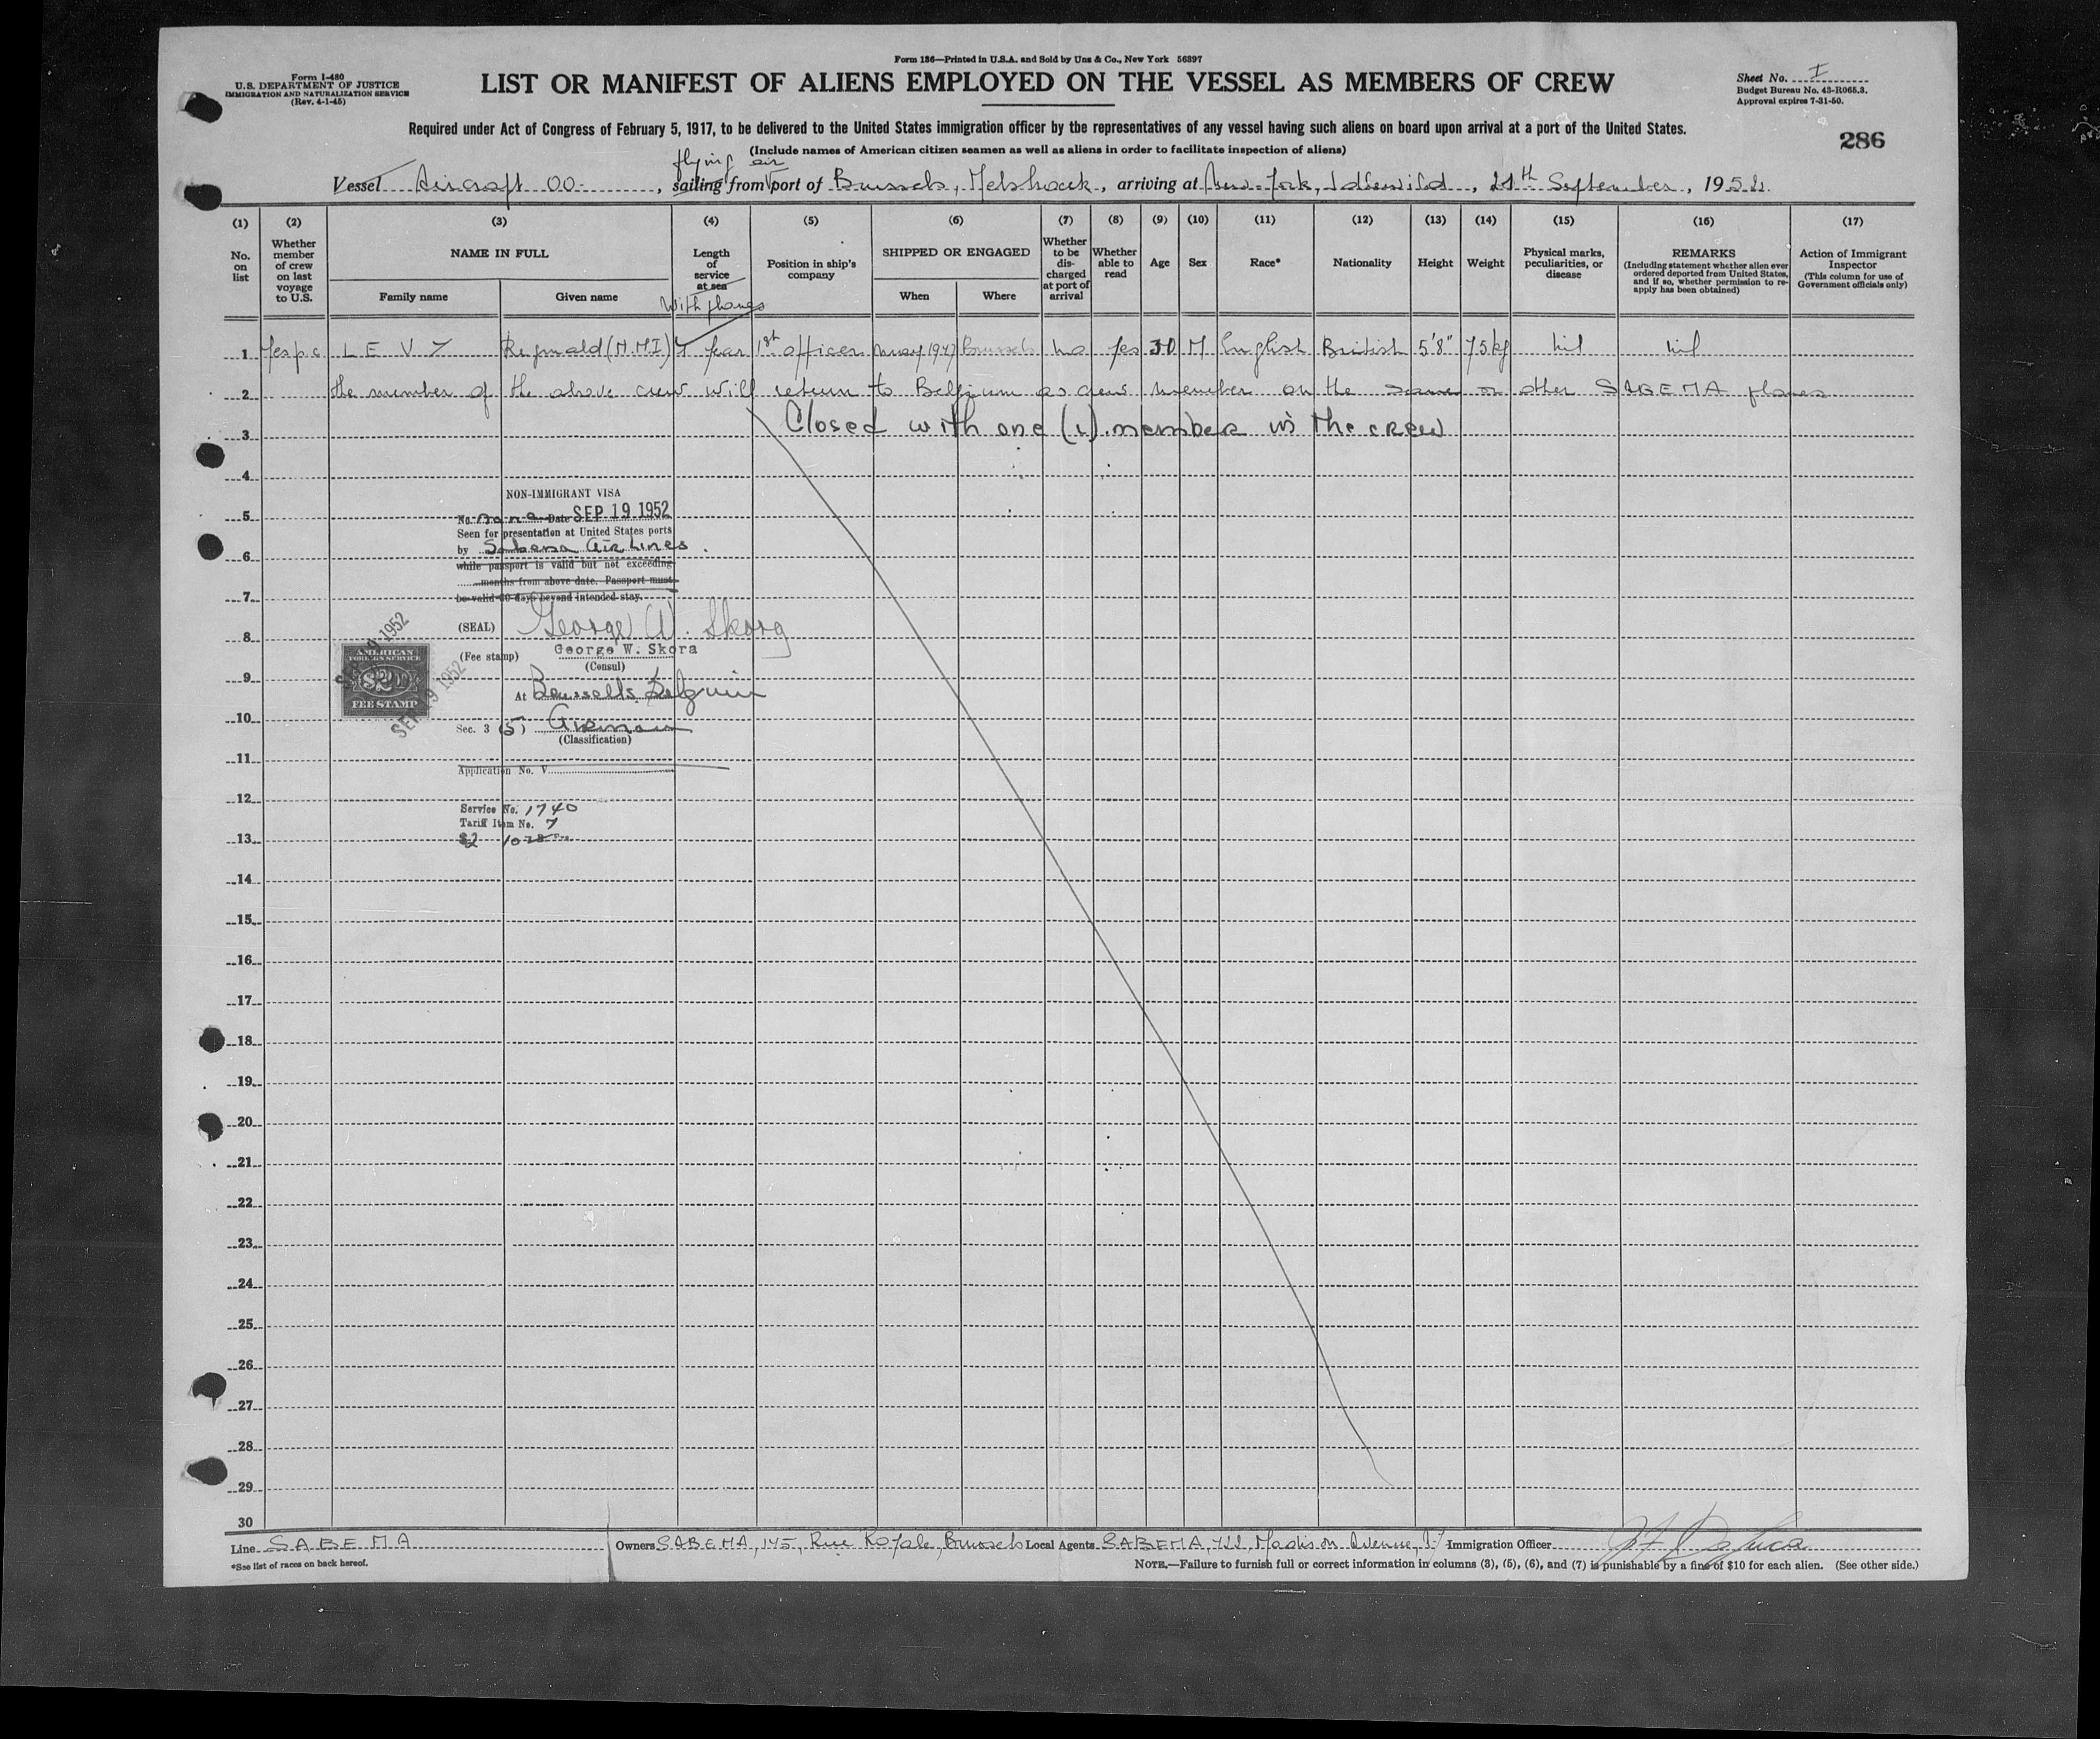 Form 136—Printed in U.S.A. and Sold by Unz & Co., New York 56897
Form I-480
U.S. DEPARTMENT OF JUSTICE
IMMIGRATION AND NATURALIZATION SERVICE
(Rev. 4-1-45)
LIST OR MANIFEST OF ALIENS EMPLOYED ON THE VESSEL AS MEMBERS OF CREW
Sheet No. I
Budget Bureau No. 43-R065.3.
Approval expires 7-31-50.
Required under Act of Congress of February 5, 1917, to be delivered to the United States immigration officer by the representatives of any vessel having such aliens on board upon arrival at a port of the United States.
286
(Include names of American citizen seamen as well as aliens in order to facilitate inspection of aliens)
flying air
Vessel Aircraft OO- , sailing from port of Brussels, Melsbroek, arriving at New-York, Idlewild, 21th September, 1952.
(1) (2) (3) (4) (5) (6) (7) (8) (9) (10) (11) (12) (13) (14) (15) (16) (17)
No. on list
Whether member of crew on last voyage to U.S.
NAME IN FULL
Family name
Given name
Length of service at sea
With planes
Position in ship's company
SHIPPED OR ENGAGED
When
Where
Whether to be discharged at port of arrival
Whether able to read
Age
Sex
Race*
Nationality
Height
Weight
Physical marks, peculiarities, or disease
REMARKS
(Including statement whether alien ever ordered deported from United States, and if so, whether permission to re-apply has been obtained)
Action of Immigrant Inspector
(This column for use of Government officials only)
1 Yes p.c. LEVY Reginald (M.M.I) year 1st officer May 1947 Brussels no yes 30 M English British 5'8" 75kg nil nil
2 the member of the above crew will return to Belgium as crew member on the same or other SABENA planes
3 Closed with one (1) member in the crew
4
NON-IMMIGRANT VISA
5 No. none Date SEP 19 1952
Seen for presentation at United States ports
6 by Sabena Air Lines.
while passport is valid but not exceeding
months from above date. Passport must
7 be valid 60 days beyond intended stay.
8 (SEAL) George W. Skora
(Fee stamp) George W. Skora
(Consul)
SEP 19 1952
AMERICAN
FOREIGN SERVICE
$2.00
FEE STAMP
SEP 19 1952
9 At Brussels, Belgium
10 Sec. 3 (5) Airman
(Classification)
11 Application No. V
12 Service No. 1740
Tariff Item No. 7
13 $2
14
15
16
17
18
19
20
21
22
23
24
25
26
27
28
29
30
Line SABENA Owners SABENA, 145, Rue Royale, Brussels Local Agents SABENA, 422 Madison Avenue, Immigration Officer
*See list of races on back hereof.
NOTE.—Failure to furnish full or correct information in columns (3), (5), (6), and (7) is punishable by a fine of $10 for each alien. (See other side.)